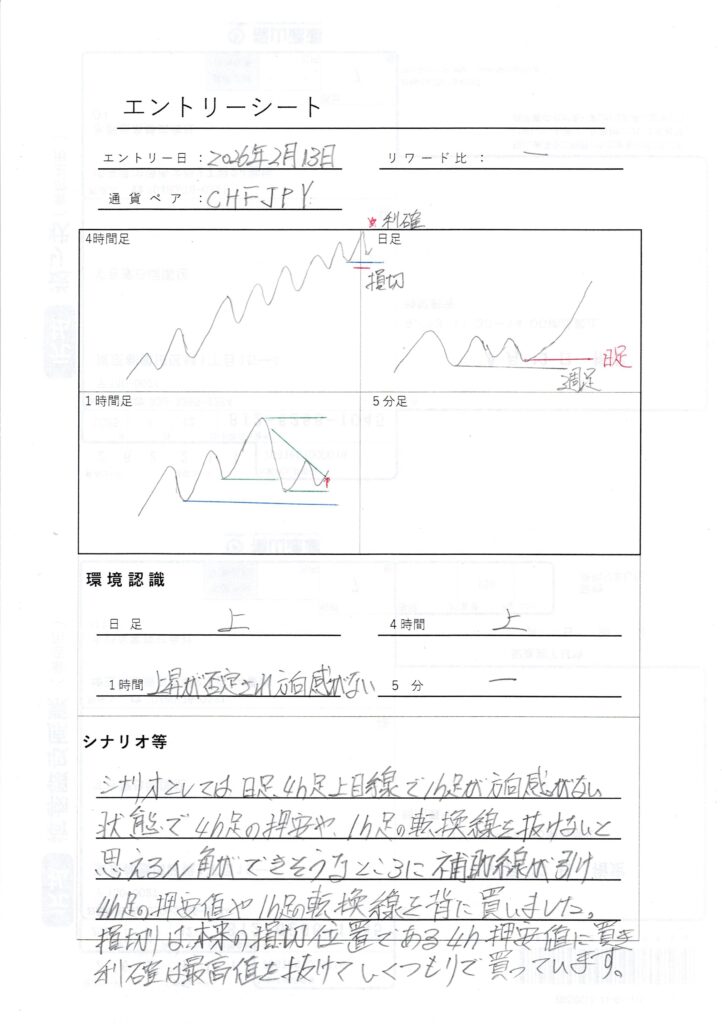 エントリーシート
エントリー日：2026年2月13日
リワード比：ー
通貨ペア：CHFJPY
利確
4時間足
日足
損切
日足
週足
1時間足
5分足
環境認識
日足 上
4時間 上
1時間 上昇が否定され方向感がない
5分 ー
シナリオ等
シナリオとしては日足、4h足上目線で1h足が方向感がない
状態で4h足の押安や、1h足の転換線を抜けないと
思えるN角ができそうなところに補助線が引け
4h足の押安値や1h足の転換線を背に買いました。
損切りは本来の損切位置である4h押安値に置き
利確は最高値を抜けていくつもりで買っています。